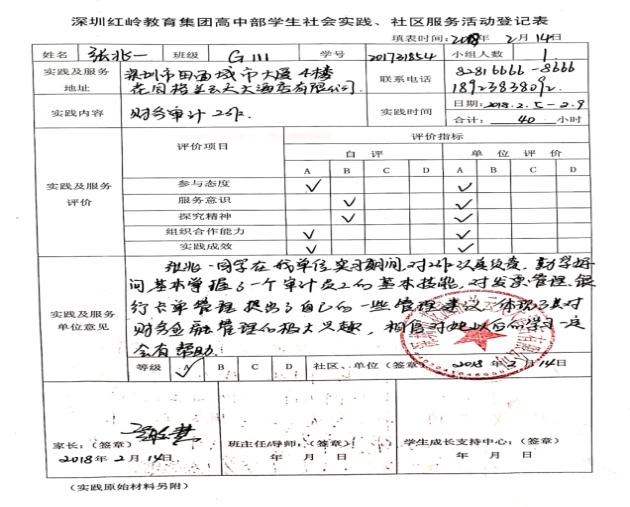 深圳红岭教育集团高中部学生社会实践、社区服务活动登记表
填表时间：2018年 2月 14日
姓名 张兆一 班级 G111 学号 201731854 小组人数 1
实践及服务地址 深圳市田面城市大厦4楼 联系电话 82816666-8666
花园格兰云天大酒店有限公司 18923838092
实践内容 财务审计工作 实践时间 日期：2018.2.5-2.9
合计： 40 小时
实践及服务评价 评价项目 评价指标
自评 单位评价
A B C D A B C D
参与态度 ✓ ✓
服务意识 ✓ ✓
探究精神 ✓ ✓
组织合作能力 ✓ ✓
实践成效 ✓ ✓
实践及服务单位意见
张兆一同学在我单位实习期间，对工作认真负责，勤学好
问，基本掌握了一个审计员工的基本技能，对发票管理、银
行卡单管理提出了自己的一些管理建议，体现了其对
财务金融管理的极大兴趣，相信对她以后的学习一定
会有帮助.
等级 A B C D 社区、单位（签章） 2018年2月14日
家长：（签章） 班主任/导师：（签章） 学生成长支持中心：（签章）
2018年2月14日 年 月 日 年 月 日
（实践原始材料另附）